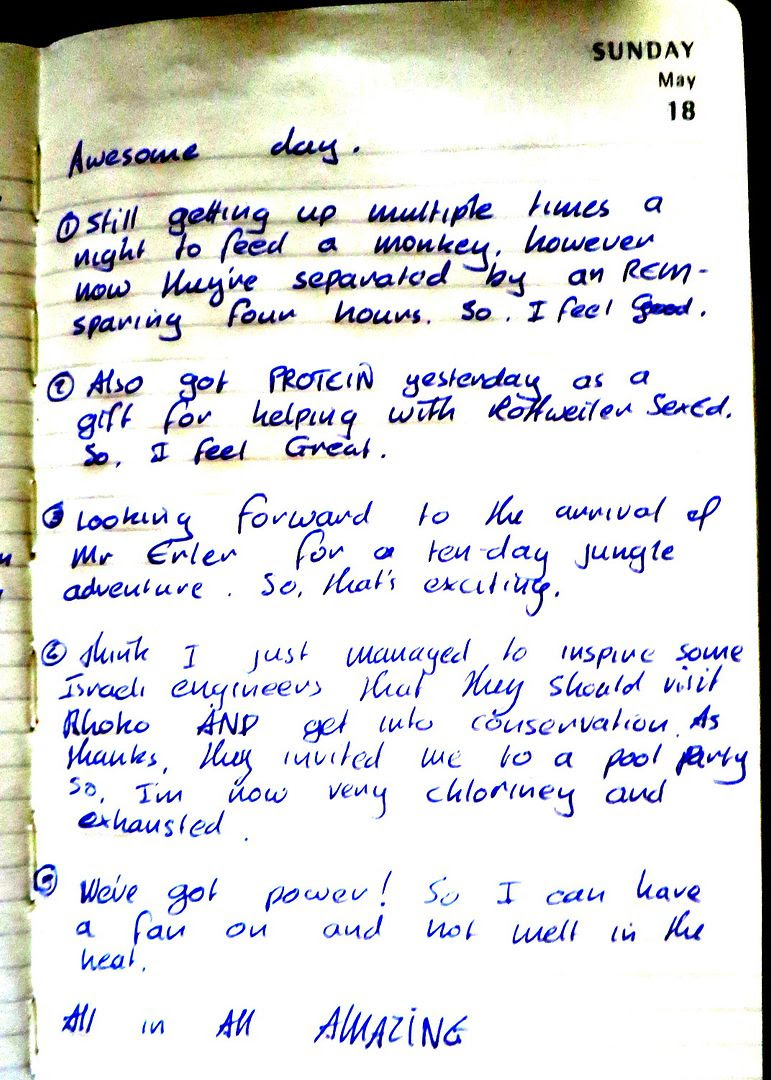 SUNDAY
May
18
Awesome day.
① Still getting up multiple times a
night to feed a monkey, however
now they're separated by an REM-
sparing four hours. So, I feel Good.
② Also got PROTEIN yesterday as a
gift for helping with Rottweiler SexEd.
So, I feel Great.
③ Looking forward to the arrival of
Mr Erler for a ten-day jungle
adventure. So, that's exciting.
④ think I just managed to inspire some
Israeli engineers that they should visit
Rhoko AND get into conservation. As
thanks, they invited me to a pool party
So, I'm now very chloriney and
exhausted.
⑤ We've got power! So I can have
a fan on and not melt in the
heat.
All in All AMAZING